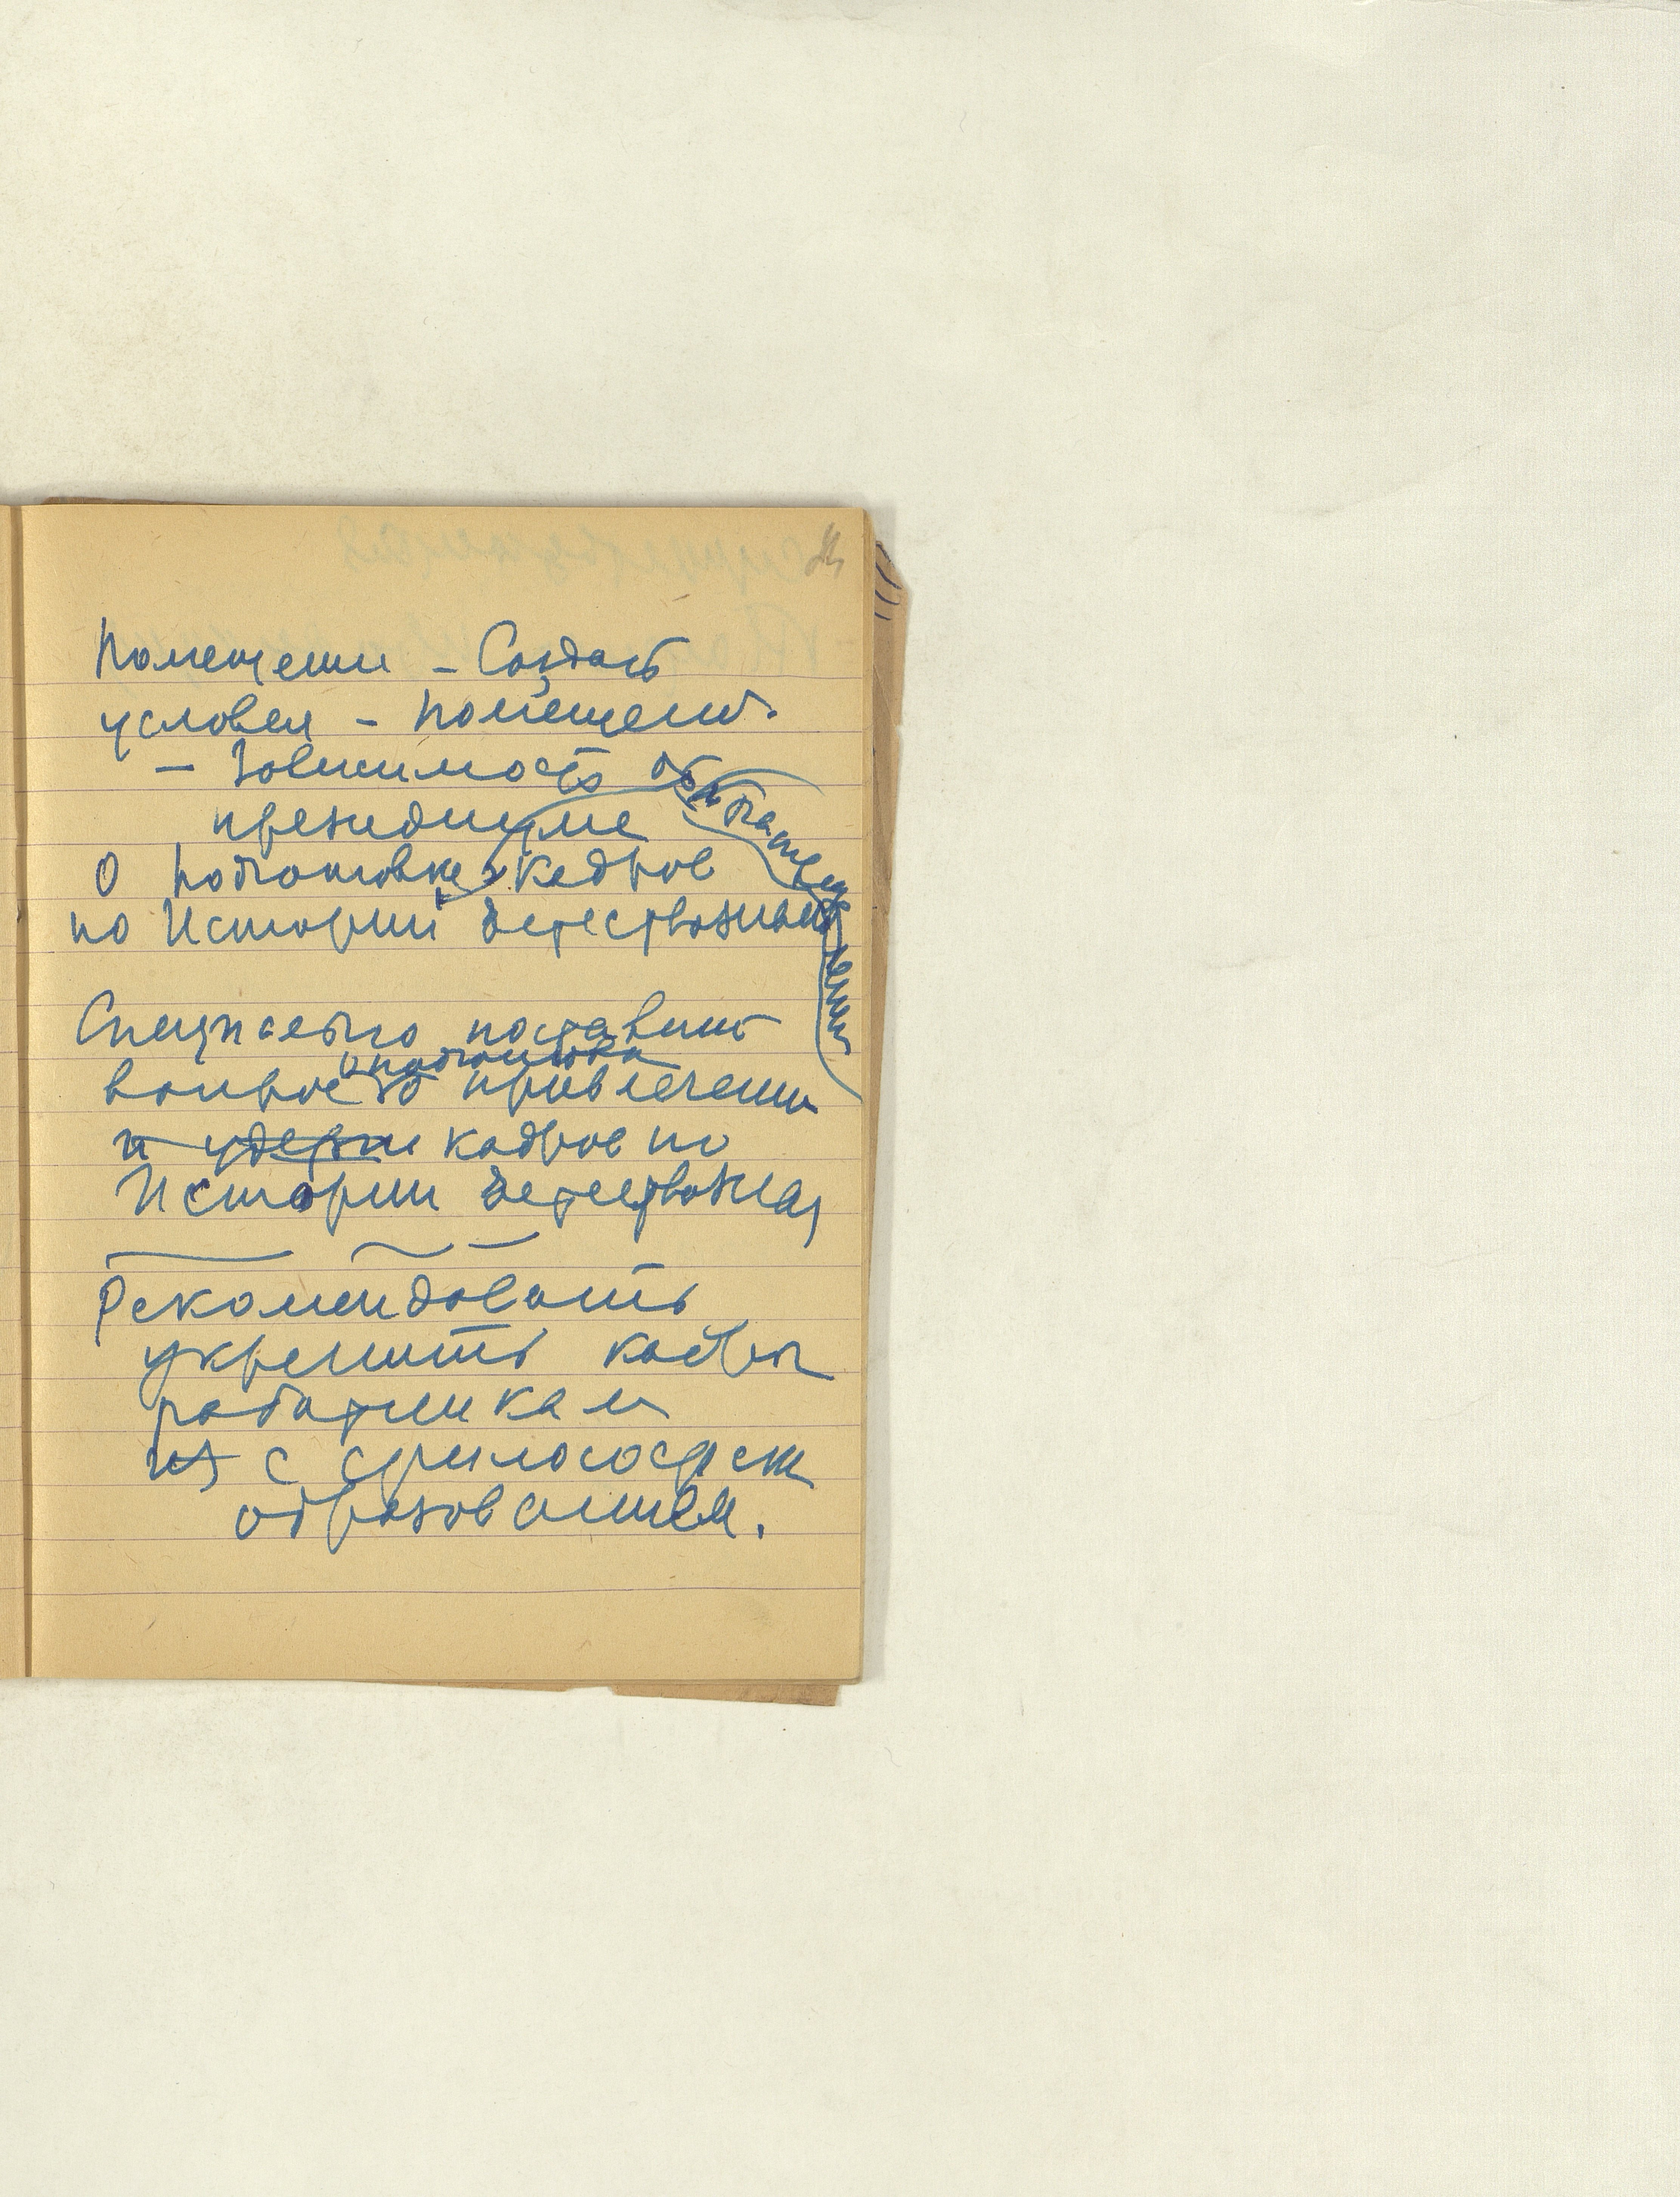 Помещени – Создать
условия – помещени.
– Зависимость от
президиуме
О подготовке кадров
по Истории Естествознани
Специально поставить
о подготовка
вопрос о привлечени
и удержи кадров по
Истории Естествозна
Рекомендовать
укрепить кадры
работникам
из с философск
образованием.